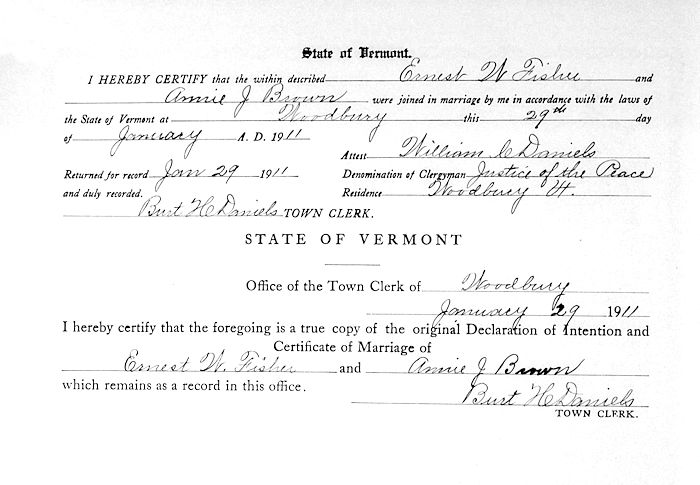 State of Vermont.
I HEREBY CERTIFY that the within described Ernest W Fisher and
Annie J Brown were joined in marriage by me in accordance with the laws of
the State of Vermont at Woodbury this 29th day
of January A. D. 1911
Attest William C Daniels
Returned for record Jan 29 1911 Denomination of Clergyman Justice of the Peace
and duly recorded. Residence Woodbury Vt.
Burt H Daniels TOWN CLERK.
STATE OF VERMONT
Office of the Town Clerk of Woodbury
January 29 1911
I hereby certify that the foregoing is a true copy of the original Declaration of Intention and
Certificate of Marriage of
Ernest W. Fisher and Annie J Brown
which remains as a record in this office.
Burt H Daniels
TOWN CLERK.